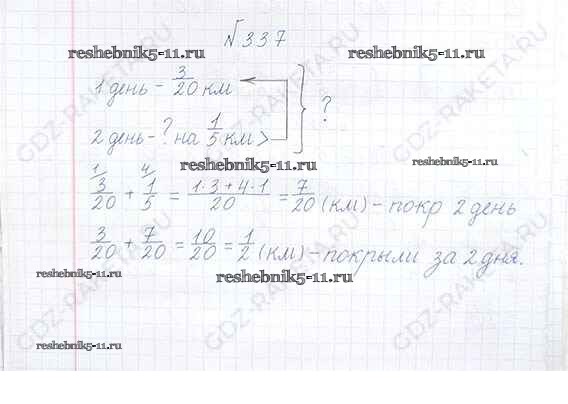 №337
reshebnik5-11.ru reshebnik5-11.ru
1 день - 3/20 км
2 день - ? на 1/5 км > ?
reshebnik5-11.ru reshebnik5-11.ru
3/20 + 1/5 = (1·3+4·1)/20 = 7/20 (км) - покр 2 день
3/20 + 7/20 = 10/20 = 1/2 (км) - покрыли за 2 дня.
reshebnik5-11.ru reshebnik5-11.ru
reshebnik5-11.ru
GDZ-RAKETA.RU
GDZ-RAKETA.RU
GDZ-RAKETA.RU
GDZ-RAKETA.RU